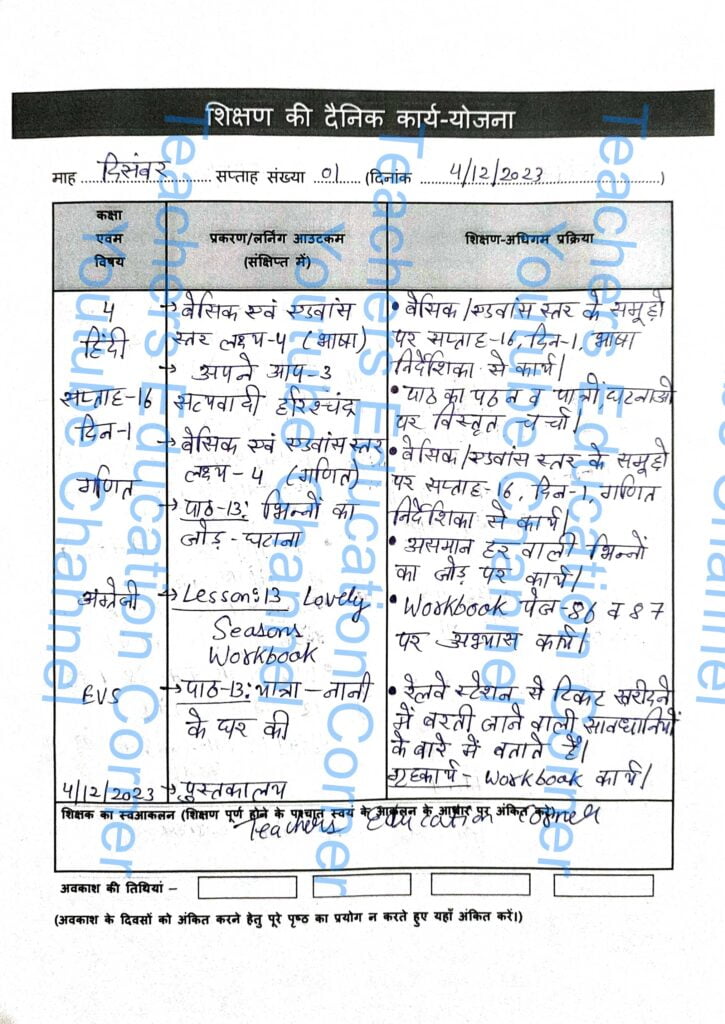 शिक्षण की दैनिक कार्य-योजना
माह दिसंबर सप्ताह संख्या 01 (दिनांक 4/12/2023)
कक्षा
एवम
विषय
प्रकरण/लर्निंग आउटकम
(संक्षिप्त में)
शिक्षण-अधिगम प्रक्रिया
4
हिंदी
सप्ताह-16
दिन-1
→ बेसिक एवं एडवांस
स्तर लक्ष्य-4 (भाषा)
→ अपने आप-3
सत्यवादी हरिश्चंद्र
• बेसिक/एडवांस स्तर के समूहों
पर सप्ताह-16, दिन-1, भाषा
निर्देशिका से कार्य।
• पाठ का पठन व पात्रों, घटनाओं
पर विस्तृत चर्चा।
गणित
→ बेसिक एवं एडवांस स्तर
लक्ष्य - 4 (गणित)
→ पाठ-13: भिन्नों का
जोड़ - घटाना
• बेसिक/एडवांस स्तर के समूहों
पर सप्ताह-16, दिन-1, गणित
निर्देशिका से कार्य।
• असमान हर वाली भिन्नों
का जोड़ पर कार्य।
अंग्रेजी
→ Lesson:13 Lovely
Seasons
Workbook
• Workbook पेज-86 व 87
पर अभ्यास कार्य।
EVS
→ पाठ-13: यात्रा - नानी
के घर की
• रेलवे स्टेशन से टिकट खरीदने
में बरती जाने वाली सावधानियों
के बारे में बताते हैं।
गृहकार्य - Workbook कार्य।
4/12/2023 → पुस्तकालय
शिक्षक का स्वआकलन (शिक्षण पूर्ण होने के पश्चात स्वयं के आकलन के आधार पर अंकित करें)
Teachers Education Corner
अवकाश की तिथियां –
(अवकाश के दिवसों को अंकित करने हेतु पूरे पृष्ठ का प्रयोग न करते हुए यहाँ अंकित करें।)
Teachers Education Corner
Youtube Channel
Teachers Education Corner
Youtube Channel
Teachers Education Corner
Youtube Channel